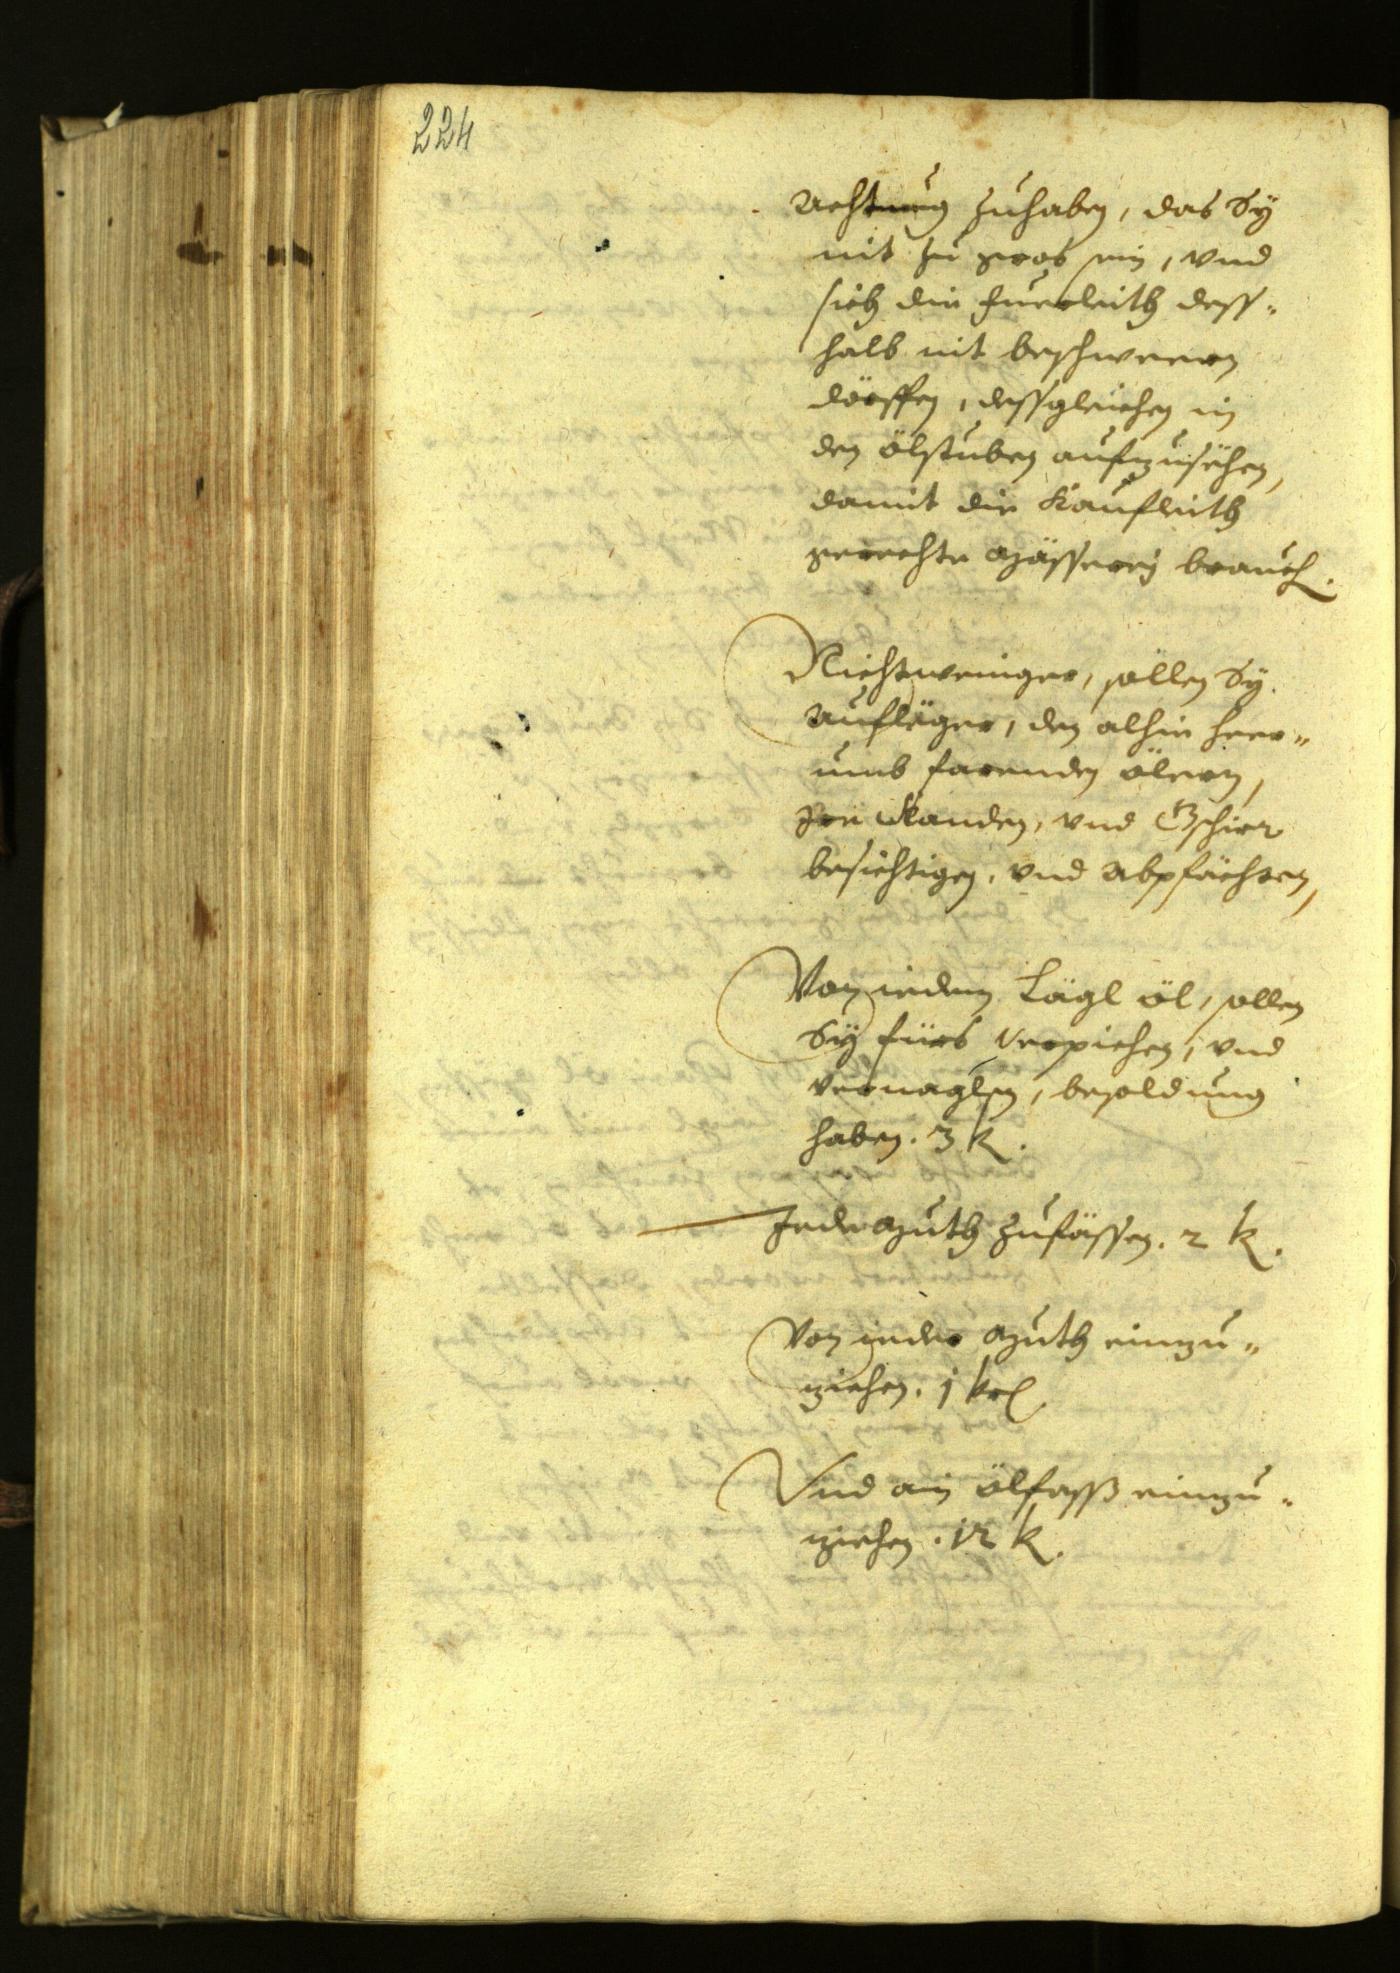 224
Achtung zuhaben, das Sÿ
nit zu gros sein, vnd
sich die Fuerleith dess„
halb nit beschweren
dörffen, dessgleichen in
den ölstuben aufzusehen,
damit die Kaufleith
gerechte Mässereÿ brauch.
Nichtweniger, sollen Sÿ
Aufläger, den alhie heer„
umb farenden ölern,
Ire Kanden, vnd Gschirr
besichtigen, vnd Abpfächten,
Von iedem Lägl öl, sollen
Sÿ fürs verpichen, vnd
vernaglen, besoldung
haben. 3 k.
Jede Muth zufässen. 2 k.
Von ieder Muth einzu„
ziehen. 1 kr.
Vnd ain ölfaß einzu„
ziehen. 12 k.